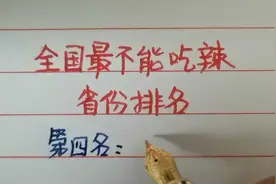 全国最不能吃辣
省份排名
第四名：